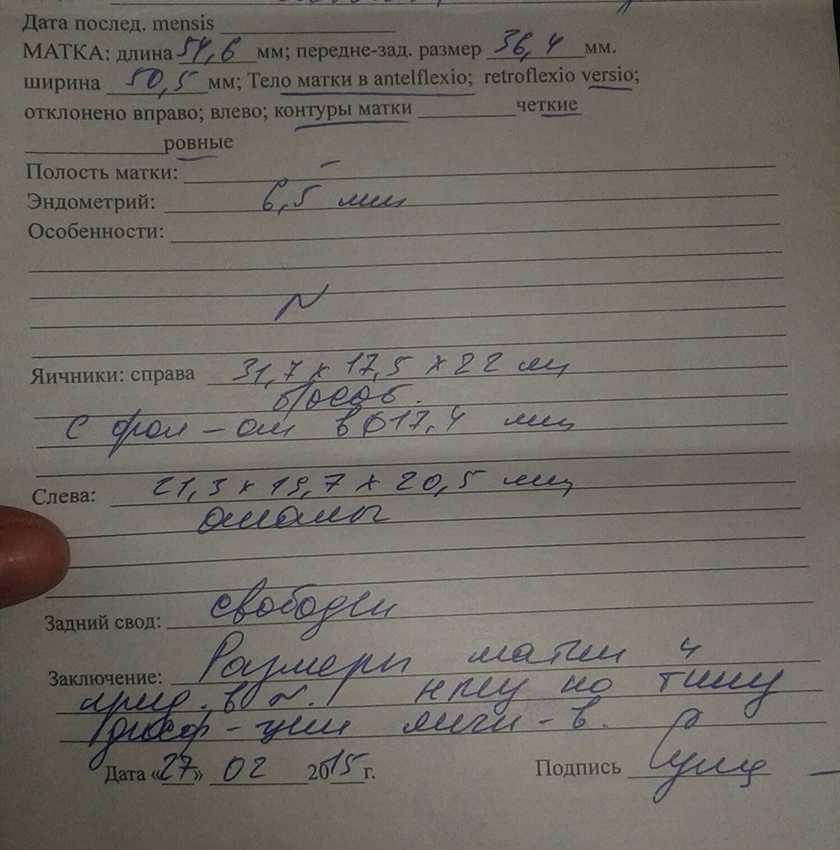 Дата послед. mensis
МАТКА: длина 54,6 мм; передне-зад. размер 36,4 мм.
ширина 50,5 мм; Тело матки в antelflexio; retroflexio versio;
отклонено вправо; влево; контуры матки четкие
ровные
Полость матки: –
Эндометрий: 6,5 мм
Особенности:
N
Яичники: справа 31,7 х 17,5 х 22 мм
с фол-ом в ф 17,4 мм
Слева: 21,3 х 19,7 х 20,5 мм
Задний свод: свободен
Заключение: Размеры матки и
прид. в N. НМЦ по типу
дисф-ции яичн-в.
Дата «27» 02 2015 г. Подпись